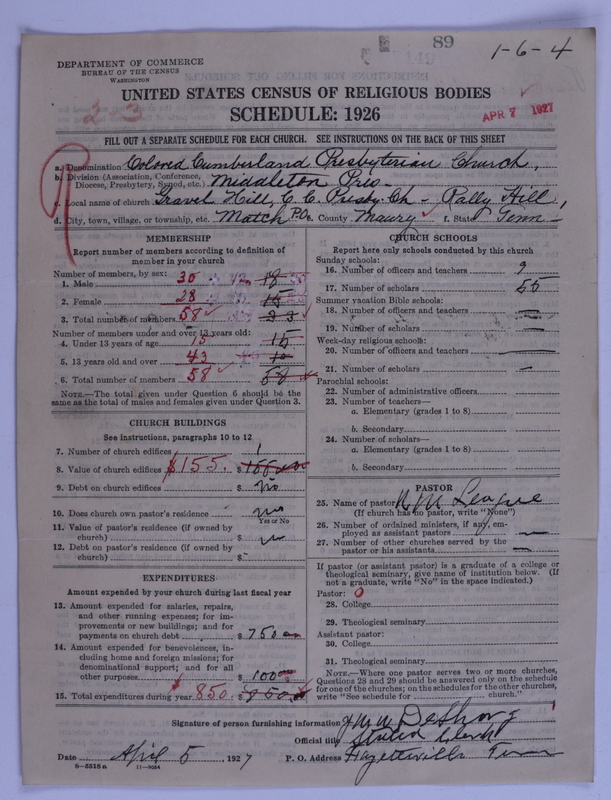 89
1-6-4
DEPARTMENT OF COMMERCE
BUREAU OF THE CENSUS
WASHINGTON
2-3
UNITED STATES CENSUS OF RELIGIOUS BODIES
SCHEDULE: 1926
APR 7 1927
FILL OUT A SEPARATE SCHEDULE FOR EACH CHURCH. SEE INSTRUCTIONS ON THE BACK OF THIS SHEET
a. Denomination Colored Cumberland Presbyterian Church,
b. Division (Association, Conference, Diocese, Presbytery, Synod, etc.) Middleton Pres.
c. Local name of church Gravel Hill, C. C. Presby Ch - Rally Hill,
d. City, town, village, or township, etc. Match P.O. e. County Maury f. State Tenn-
MEMBERSHIP
Report number of members according to definition of
member in your church
Number of members, by sex:
1. Male 30 18
2. Female 28 15
3. Total number of members 58
Number of members under and over 13 years old:
4. Under 13 years of age 15 15
5. 13 years old and over 43
6. Total number of members 58 58
NOTE.—The total given under Question 6 should be the
same as the total of males and females given under Question 3.
CHURCH BUILDINGS
See instructions, paragraphs 10 to 12
7. Number of church edifices 1
8. Value of church edifices $155.
9. Debt on church edifices $ No
10. Does church own pastor's residence no
Yes or No
11. Value of pastor's residence (if owned by
church) $
12. Debt on pastor's residence (if owned by
church) $
EXPENDITURES
Amount expended by your church during last fiscal year
13. Amount expended for salaries, repairs,
and other running expenses; for im-
provements or new buildings; and for
payments on church debt $ 750
14. Amount expended for benevolences, in-
cluding home and foreign missions; for
denominational support; and for all
other purposes $ 100
15. Total expenditures during year 850. $ 850
CHURCH SCHOOLS
Report here only schools conducted by this church
Sunday schools:
16. Number of officers and teachers 9
17. Number of scholars 55
Summer vacation Bible schools:
18. Number of officers and teachers
19. Number of scholars
Week-day religious schools:
20. Number of officers and teachers
21. Number of scholars
Parochial schools:
22. Number of administrative officers
23. Number of teachers—
a. Elementary (grades 1 to 8)
b. Secondary
24. Number of scholars—
a. Elementary (grades 1 to 8)
b. Secondary
PASTOR
25. Name of pastor League
(If church has no pastor, write "None")
26. Number of ordained ministers, if any, em-
ployed as assistant pastors
27. Number of other churches served by the
pastor or his assistants
If pastor (or assistant pastor) is a graduate of a college or
theological seminary, give name of institution below. (If
not a graduate, write "No" in the space indicated.)
Pastor: 0
28. College
29. Theological seminary
Assistant pastor:
30. College
31. Theological seminary
NOTE.—Where one pastor serves two or more churches,
Questions 28 and 29 should be answered only on the schedule
for one of the churches; on the schedules for the other churches,
write "See schedule for church."
Signature of person furnishing information
Official title Stated Clerk
Date April 5 1927 P. O. Address Tenn
8-5518a 11-9054